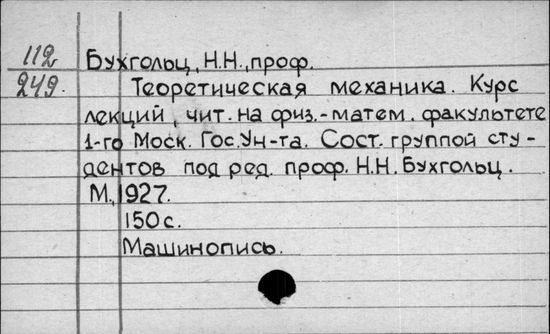 112
249.
Бухгольц, Н.Н., проф.
Теоретическая механика. Курс
лекций, чит. на физ.-матем. факультете
1-го Моск. Гос. Ун-та. Сост. группой сту-
дентов под ред. проф. Н.Н. Бухгольц.
М., 1927.
150 с.
Машинопись.